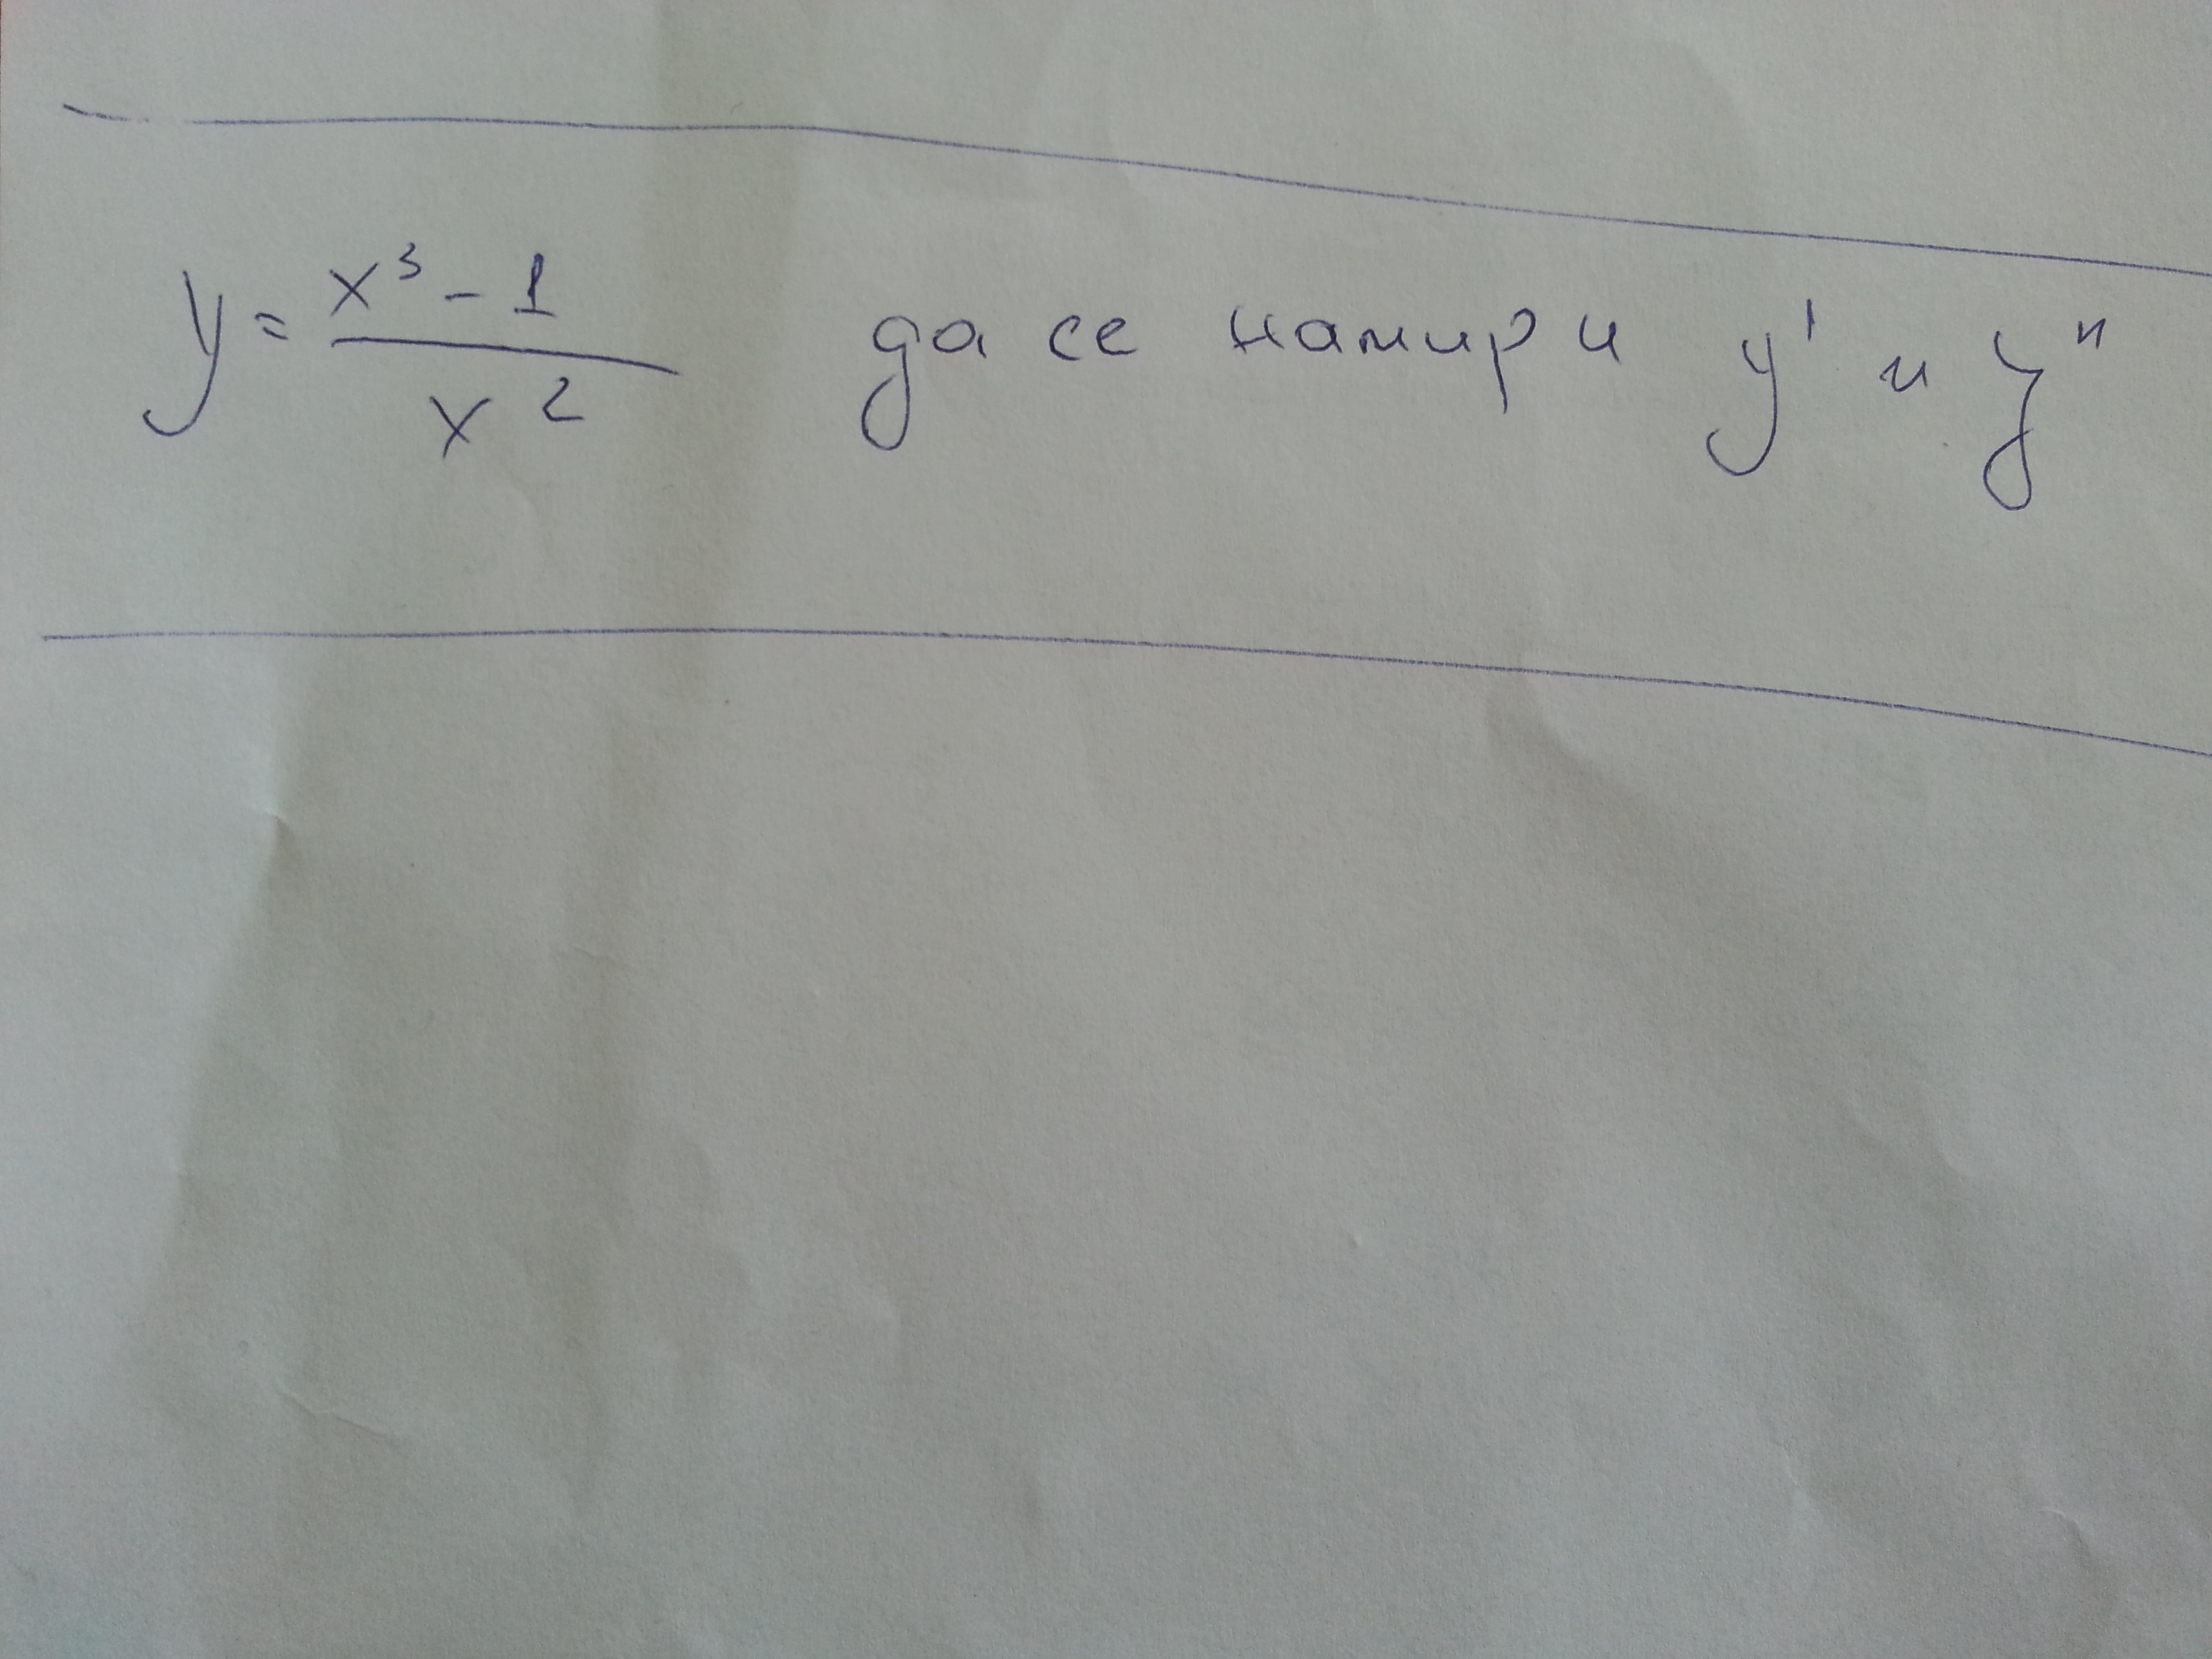 y = (x³ - 1) / x² да се намири y' и y"